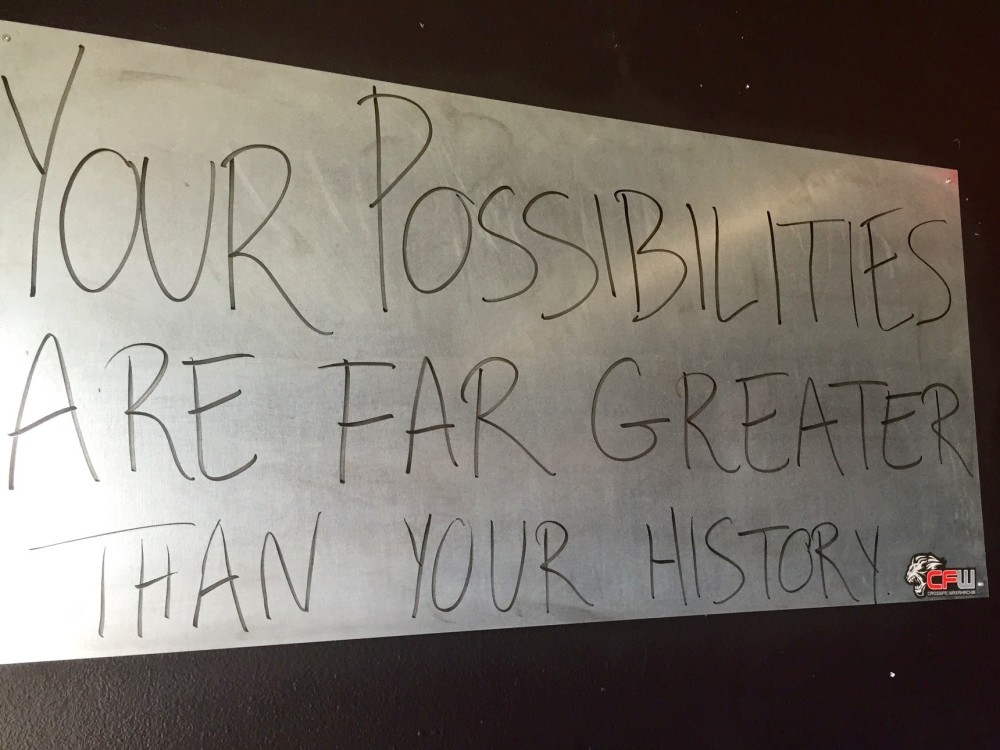 YOUR POSSIBILITIES
ARE FAR GREATER
THAN YOUR HISTORY.
CFW